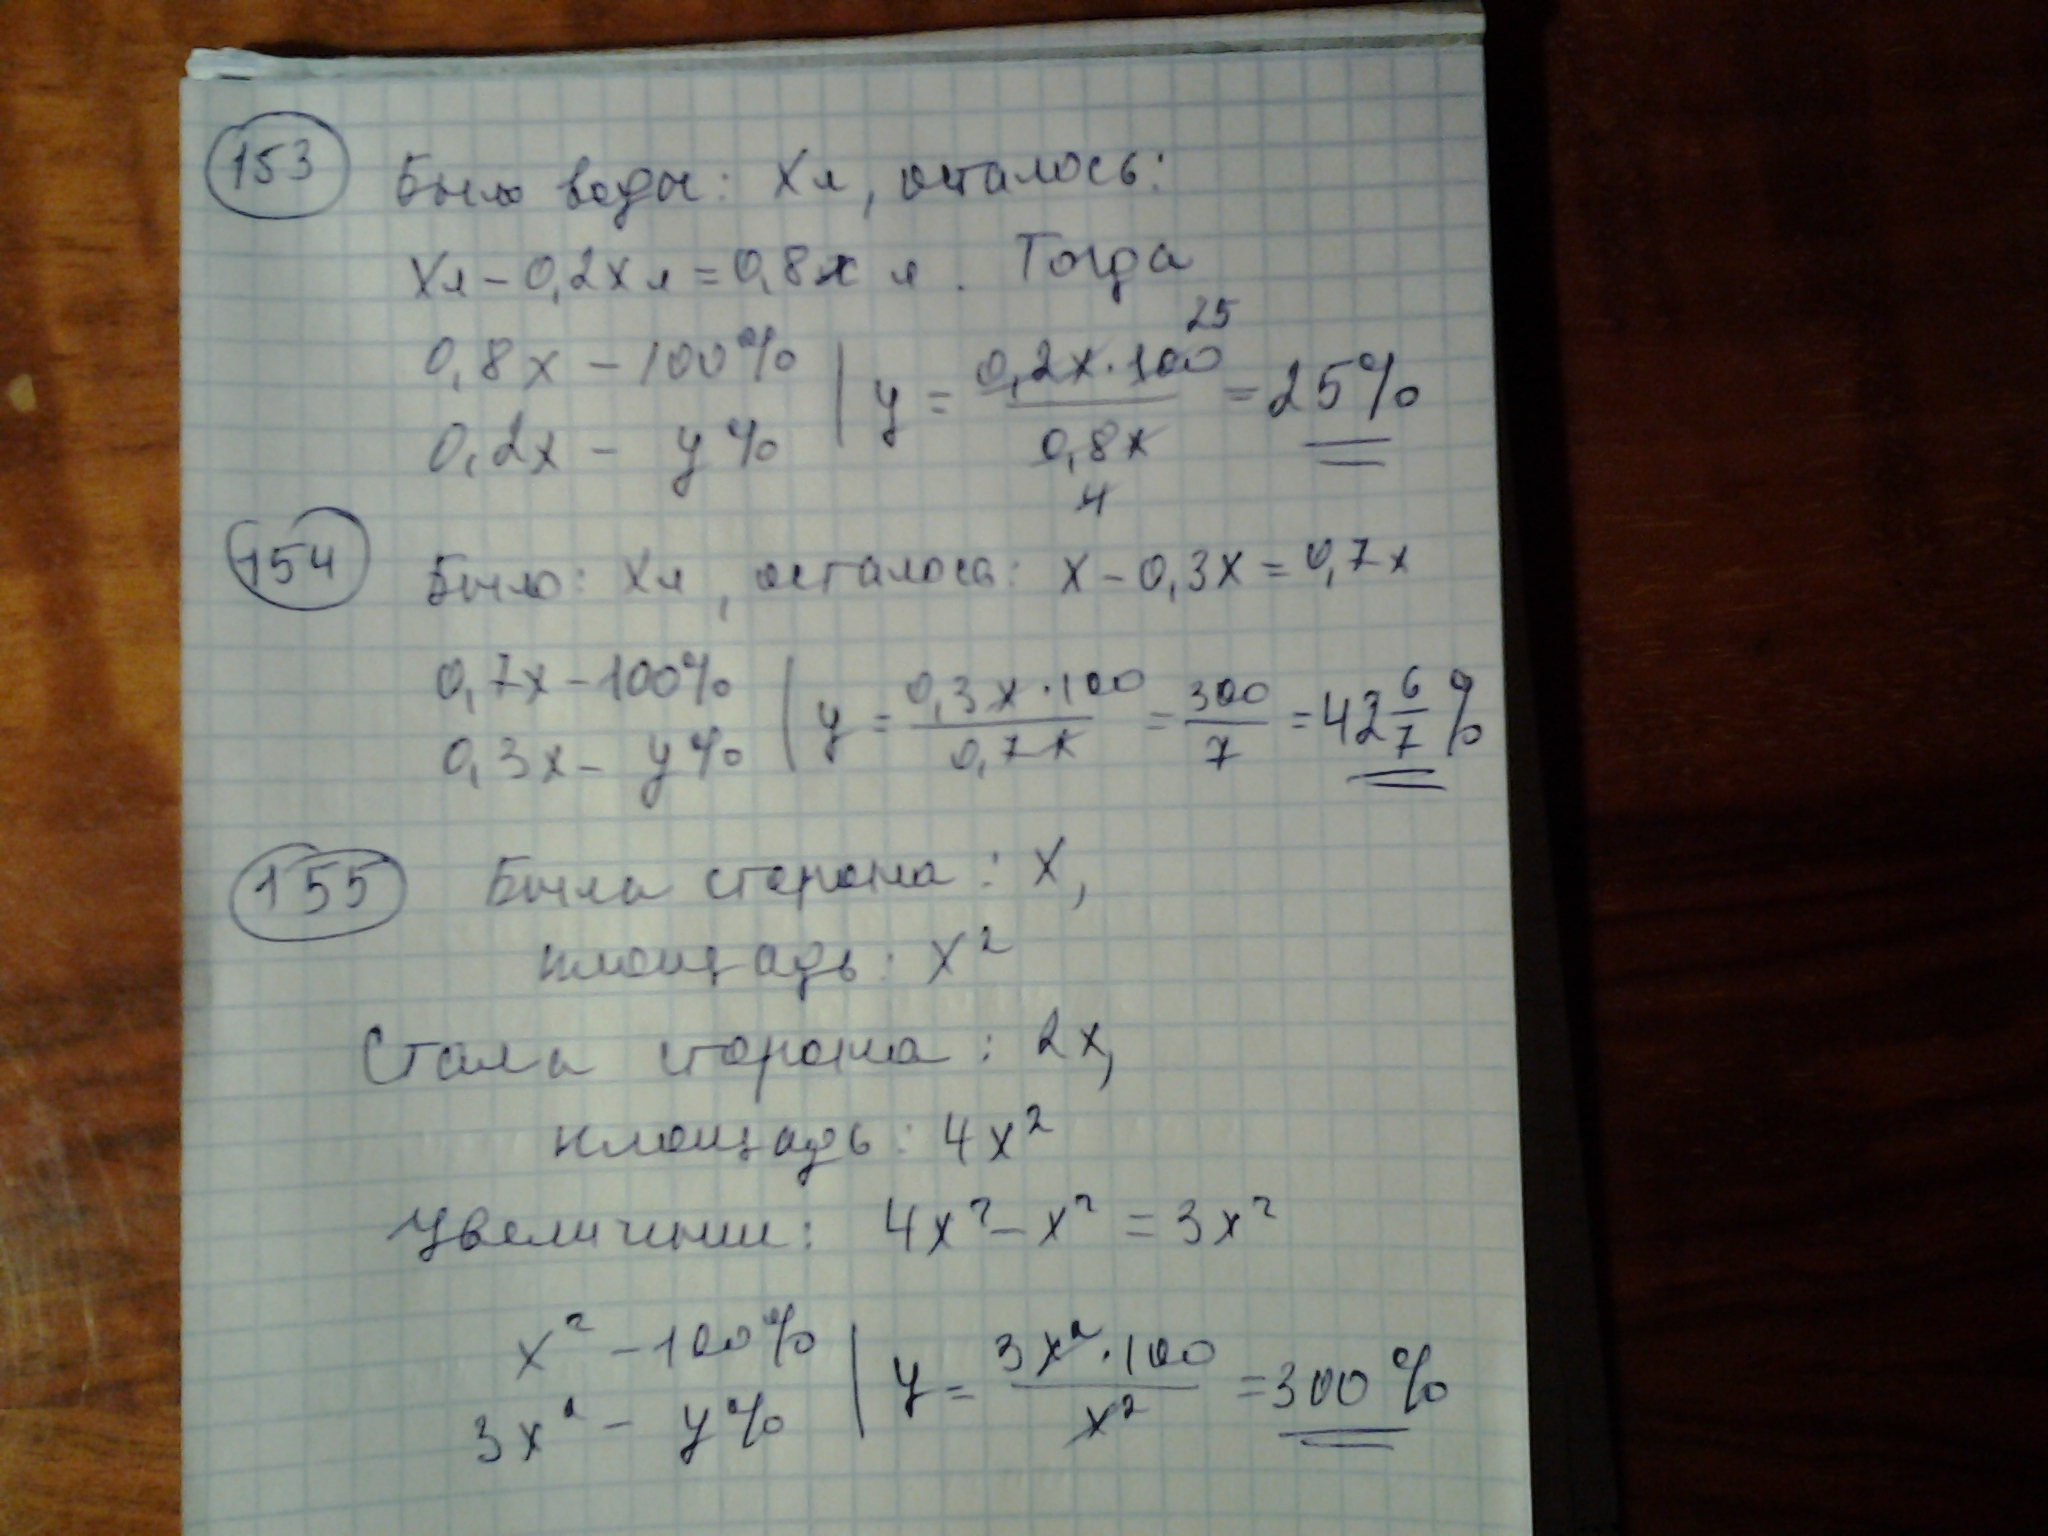 153 Было воды: Xл, осталось:
Xл - 0,2Xл = 0,8x л. Тогда
0,8x - 100% | y = 0,2x·100 / 0,8x = 25%
25
0,2x - y%
4
154 Было: Xл, осталось: x - 0,3x = 0,7x
0,7x - 100% | y = 0,3x·100 / 0,7x = 300/7 = 42 6/7 %
0,3x - y%
155 Была сторона: x,
площадь: x²
Стала сторона: 2x,
площадь: 4x²
Увеличили: 4x² - x² = 3x²
x² - 100% | y = 3x²·100 / x² = 300%
3x² - y%